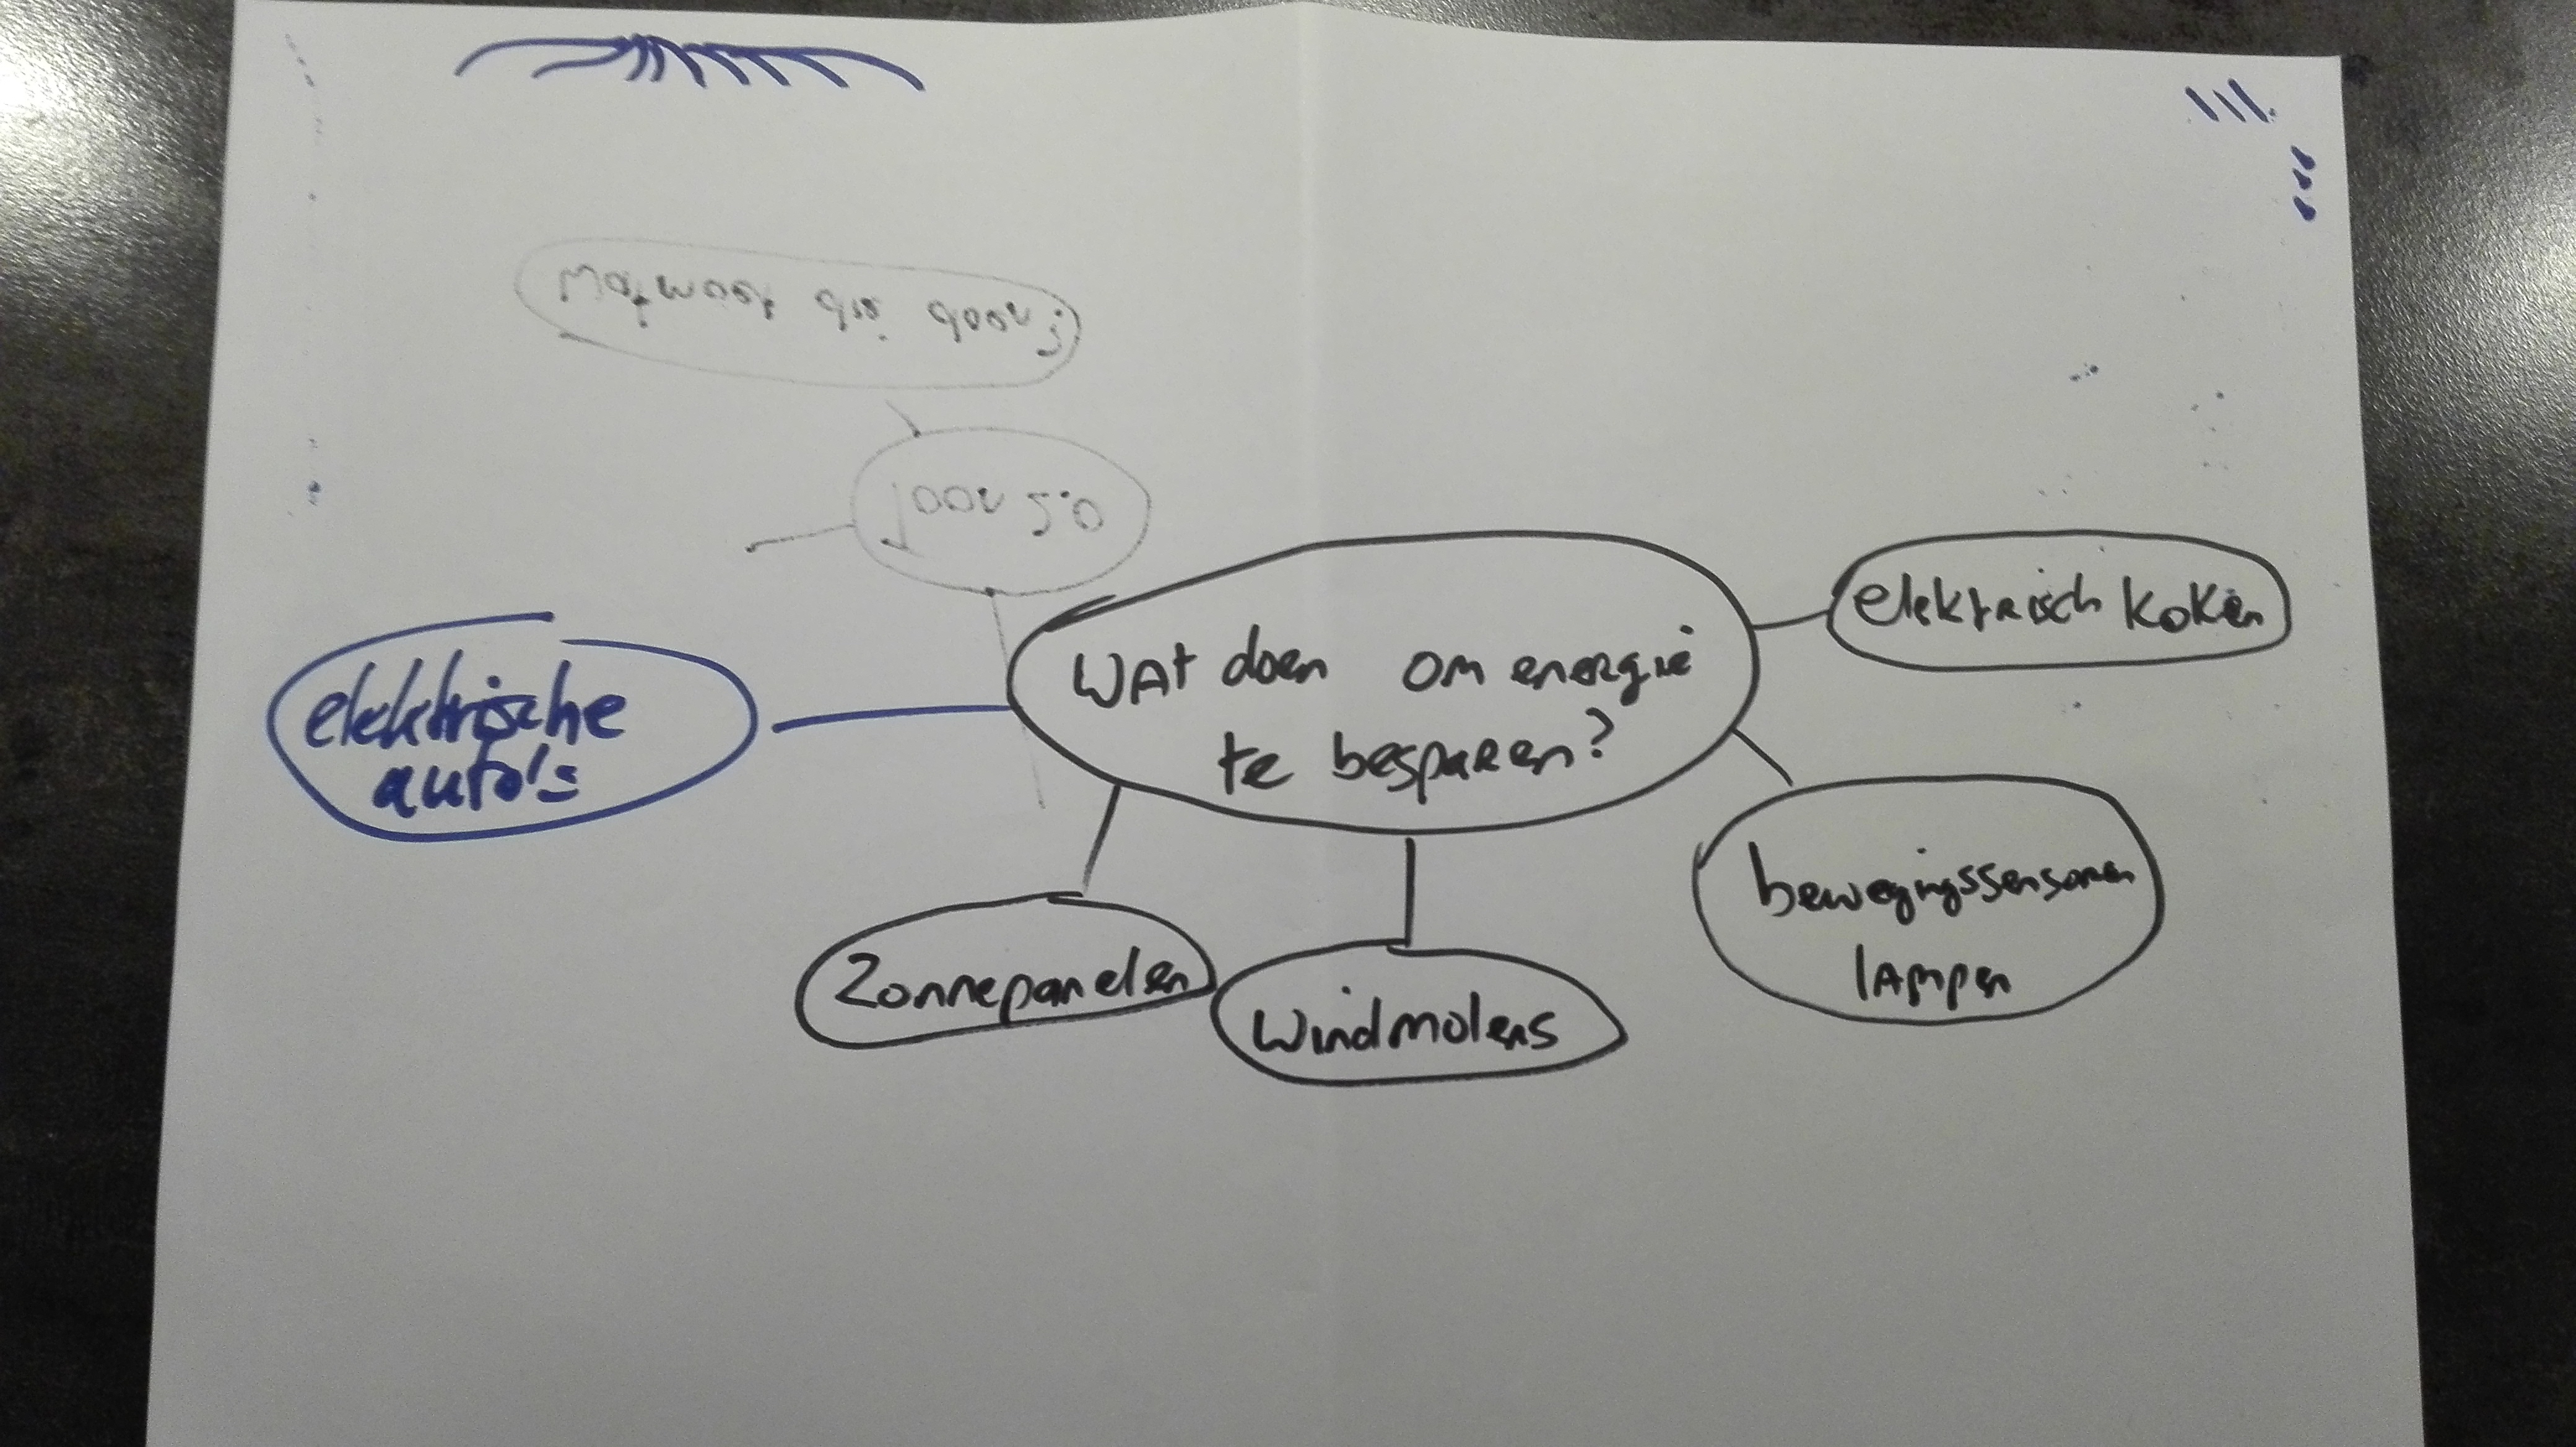 Wat doen om energie
te besparen?
elektrisch koken
bewegingssensoren
lampen
windmolens
Zonnepanelen
elektrische
auto's